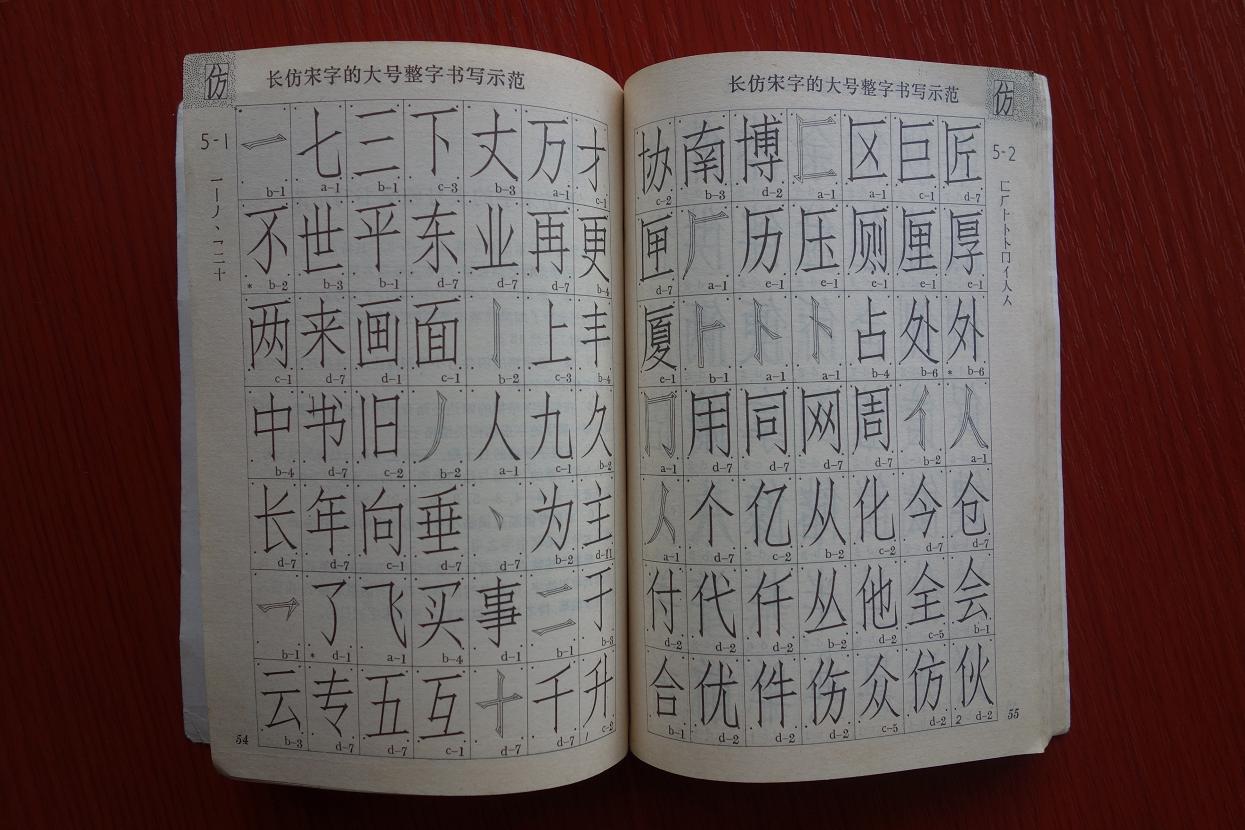 仿
长仿宋字的大号整字书写示范
5-1
一丨丿丶㇕二十
一 七 三 下 丈 万 才
b-1 a-1 b-1 c-3 b-3 a-1 c-1
不 世 平 东 业 再 更
* b-2 b-3 b-1 d-7 d-7 d-7 b-4
两 来 画 面 丨 上 丰
c-1 d-7 d-1 c-1 b-2 c-3 b-4
中 书 旧 丿 人 九 久
b-4 d-7 c-2 b-2 a-1 c-1 b-2
长 年 向 垂 丶 为 主
d-7 d-7 c-1 d-7 d-7 b-2 d-11
㇕ 了 飞 买 事 二 于
b-1 * d-1 a-1 b-4 d-1 b-1 b-3
云 专 五 互 十 千 升
b-3 d-7 d-7 c-1 d-7 d-7 1 c-2
54
长仿宋字的大号整字书写示范
仿
5-2
匚厂⺊卜冂亻人
协 南 博 匚 区 巨 匠
c-2 b-3 d-2 a-1 a-1 c-1 d-7
匣 厂 历 压 厕 厘 厚
d-7 a-1 e-1 e-1 e-1 e-1 e-1
厦 ⺊ 卜 卜 占 处 外
e-1 b-1 a-1 a-1 b-4 b-6 * b-6
冂 用 同 网 周 亻 人
a-1 d-7 d-7 d-7 d-7 b-2 a-1
人 个 亿 从 化 今 仓
a-1 d-7 c-2 b-2 c-2 d-7 d-7
付 代 仟 丛 他 全 会
d-2 d-2 d-2 b-2 d-2 c-5 b-1
合 优 件 伤 众 仿 伙
b-1 d-2 d-2 d-2 c-5 d-2 2 d-2
55